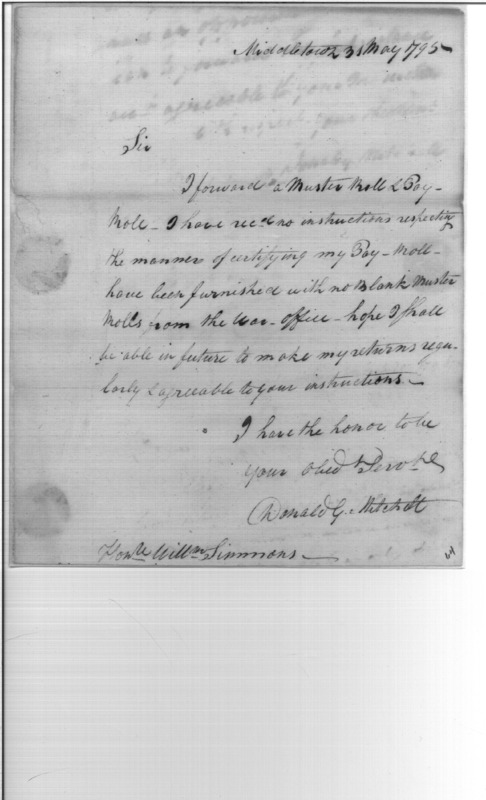 Middletown 31 May 1795
Sir
I forward a Muster Roll & Pay-
Roll - I have recd no instructions respecting
the manner of certifying my Pay-Roll -
have been furnished with no Blank Muster
Rolls from the War-office - hope I shall
be able in future to make my returns regu-
larly & agreeable to your instructions -
I have the honor to be
your obedt Servt
Donald G. Mitchell
Honle Willm Simmons -